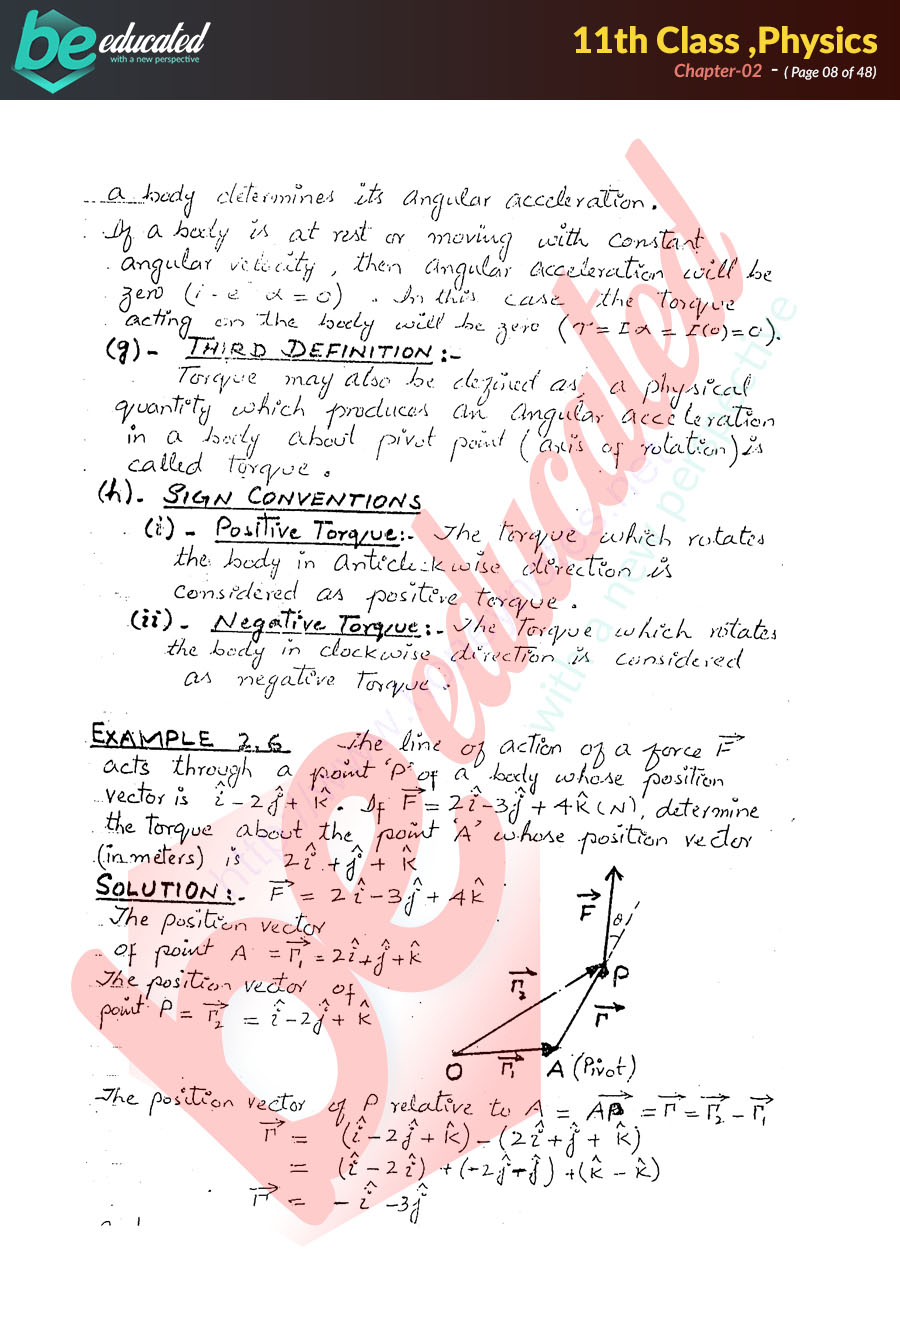 be educated
with a new perspective
11th Class ,Physics
Chapter-02 - ( Page 08 of 48)
a body determines its angular acceleration.
If a body is at rest or moving with constant
angular velocity, then angular acceleration will be
zero (i-e α=0). In this case the torque
acting on the body will be zero (τ=Iα=I(0)=0).
(g)- THIRD DEFINITION:-
Torque may also be defined as, a physical
quantity which produces an angular acceleration
in a body about pivot point (axis of rotation) is
called torque.
(h)- SIGN CONVENTIONS
(i)- Positive Torque:- The torque which rotates
the body in Anticlockwise direction is
considered as positive torque.
(ii)- Negative Torque:- The Torque which rotates
the body in clockwise direction is considered
as negative Torque.
EXAMPLE 2.6 The line of action of a force F⃗
acts through a point 'P' of a body whose position
vector is î-2ĵ+k̂. If F⃗=2î-3ĵ+4k̂(N), determine
the torque about the point 'A' whose position vector
(in meters) is 2î+ĵ+k̂
SOLUTION:- F⃗ = 2î-3ĵ+4k̂
The position vector
of point A = r⃗₁=2î+ĵ+k̂
The position vector of
point P = r⃗₂ = î-2ĵ+k̂
F⃗
θ
P
r⃗₂
r⃗
O
r⃗₁
A (Pivot)
The position vector of P relative to A = AP⃗ = r⃗ = r⃗₂-r⃗₁
r⃗ = (î-2ĵ+k̂)-(2î+ĵ+k̂)
= (î-2î)+(-2ĵ-ĵ)+(k̂-k̂)
r⃗ = -î-3ĵ
be educated
with a new perspective